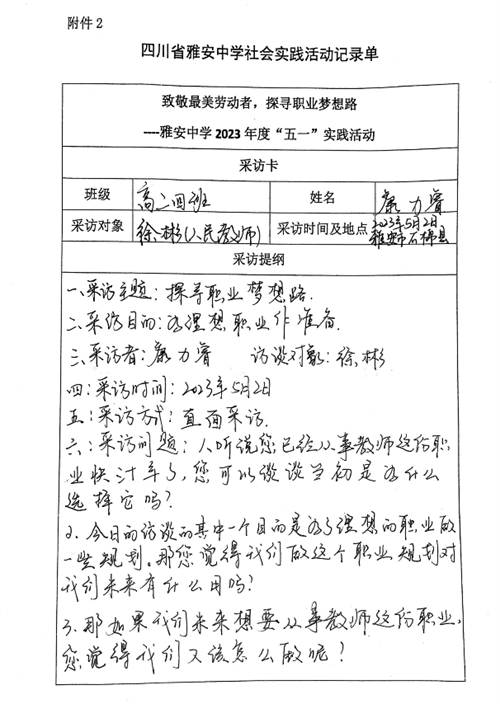 附件2
四川省雅安中学社会实践活动记录单
致敬最美劳动者，探寻职业梦想路
----雅安中学2023年度“五一”实践活动
采访卡
班级 高二四班 姓名 康力睿
采访对象 徐彬(人民教师) 采访时间及地点 2023年5月2日
雅安市石棉县
采访提纲
一、采访主题：探寻职业梦想路.
二、采访目的：为理想职业作准备.
三、采访者：康力睿 访谈对象：徐彬
四：采访时间：2023年5月2日
五：采访方式：直面采访.
六：采访问题：1、听说您已经从事教师这份职
业快汁年了，您可以谈谈当初是为什么
选择它吗？
2、今日的访谈的其中一个目的是为了理想的职业做
一些规划。那您觉得我们做这个职业规划对
我们未来有什么用吗？
3、那如果我们未来想要从事教师这份职业，
您觉得我们又该怎么做呢？